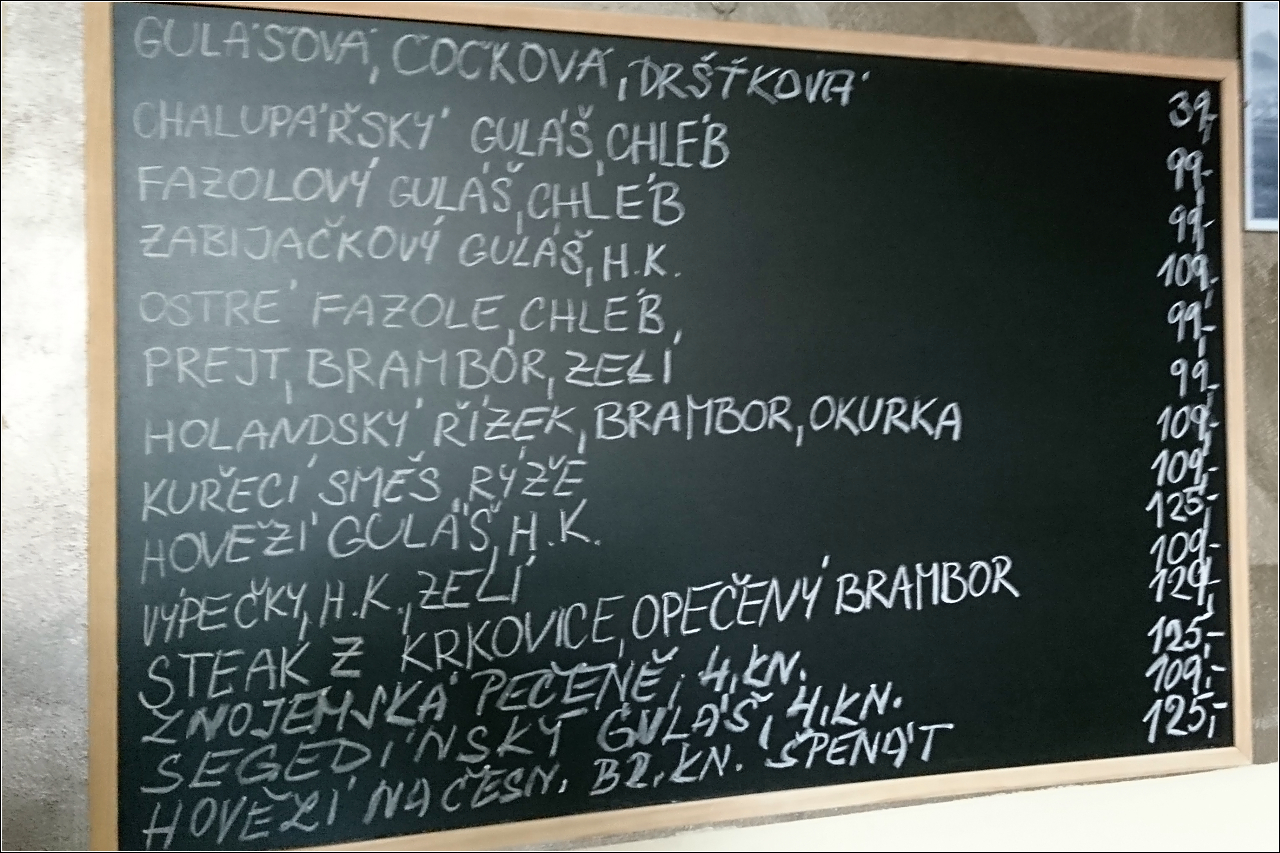 GULÁŠOVÁ, ČOČKOVÁ, DRŠŤKOVÁ 39,-
CHALUPÁŘSKÝ GULÁŠ, CHLÉB 99,-
FAZOLOVÝ GULÁŠ, CHLÉB 99,-
ZABIJAČKOVÝ GULÁŠ, H.K. 109,-
OSTRÉ FAZOLE, CHLÉB, 99,-
PREJT, BRAMBOR, ZELÍ 99,-
HOLANDSKÝ ŘÍZEK, BRAMBOR, OKURKA 109,-
KUŘECÍ SMĚS, RÝŽE 109,-
HOVĚZÍ GULÁŠ, H.K. 125,-
VÝPEČKY, H.K., ZELÍ 109,-
STEAK Z KRKOVICE, OPEČENÝ BRAMBOR 129,-
ZNOJEMSKÁ PEČENĚ, 4.KN. 125,-
SEGEDÍNSKÝ GULÁŠ, 4.KN. 109,-
HOVĚZÍ NA ČESN. BR.KN. ŠPENÁT 125,-